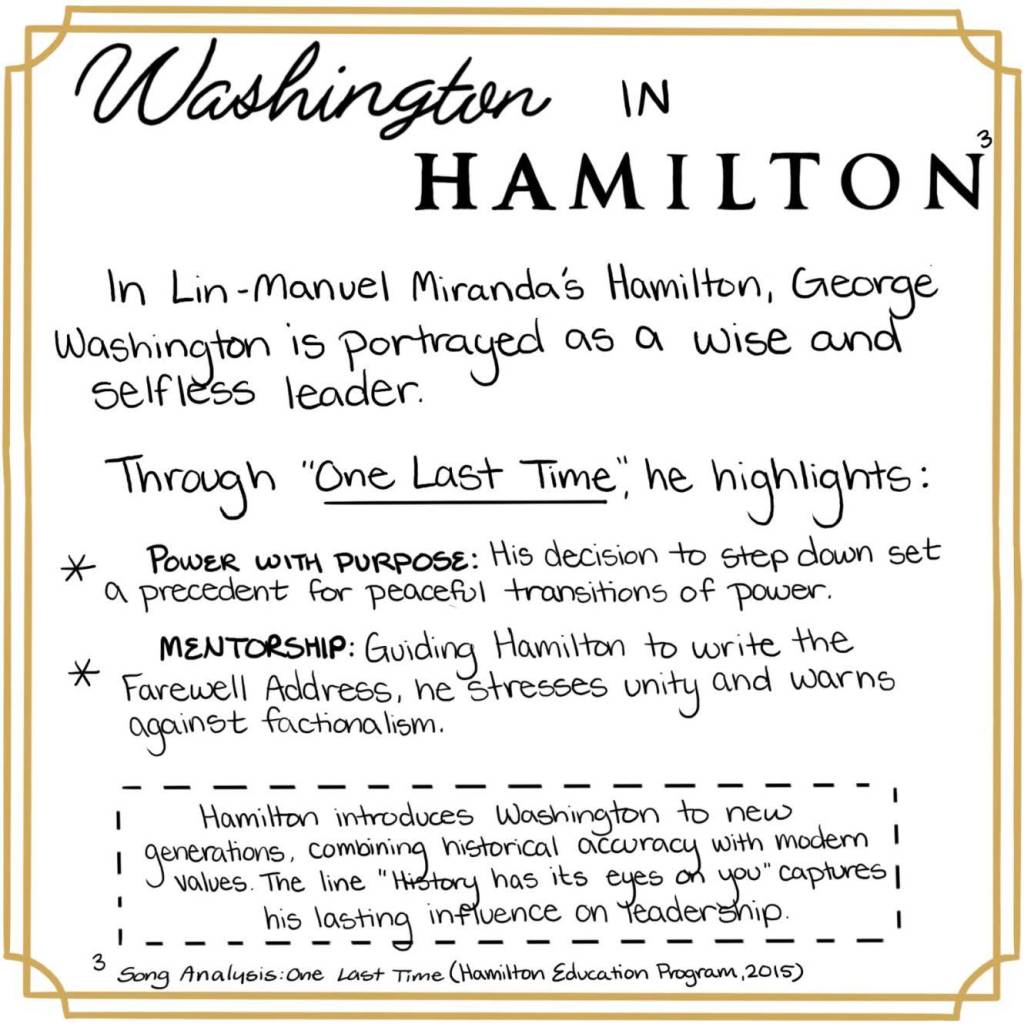 Washington IN
HAMILTON³
In Lin-Manuel Miranda's Hamilton, George
Washington is portrayed as a wise and
selfless leader.
Through "One Last Time", he highlights:
* POWER WITH PURPOSE: His decision to step down set
a precedent for peaceful transitions of power.
* MENTORSHIP: Guiding Hamilton to write the
Farewell Address, he stresses unity and warns
against factionalism.
Hamilton introduces Washington to new
generations, combining historical accuracy with modern
values. The line "History has its eyes on you" captures
his lasting influence on leadership.
³ Song Analysis: One Last Time (Hamilton Education Program, 2015)